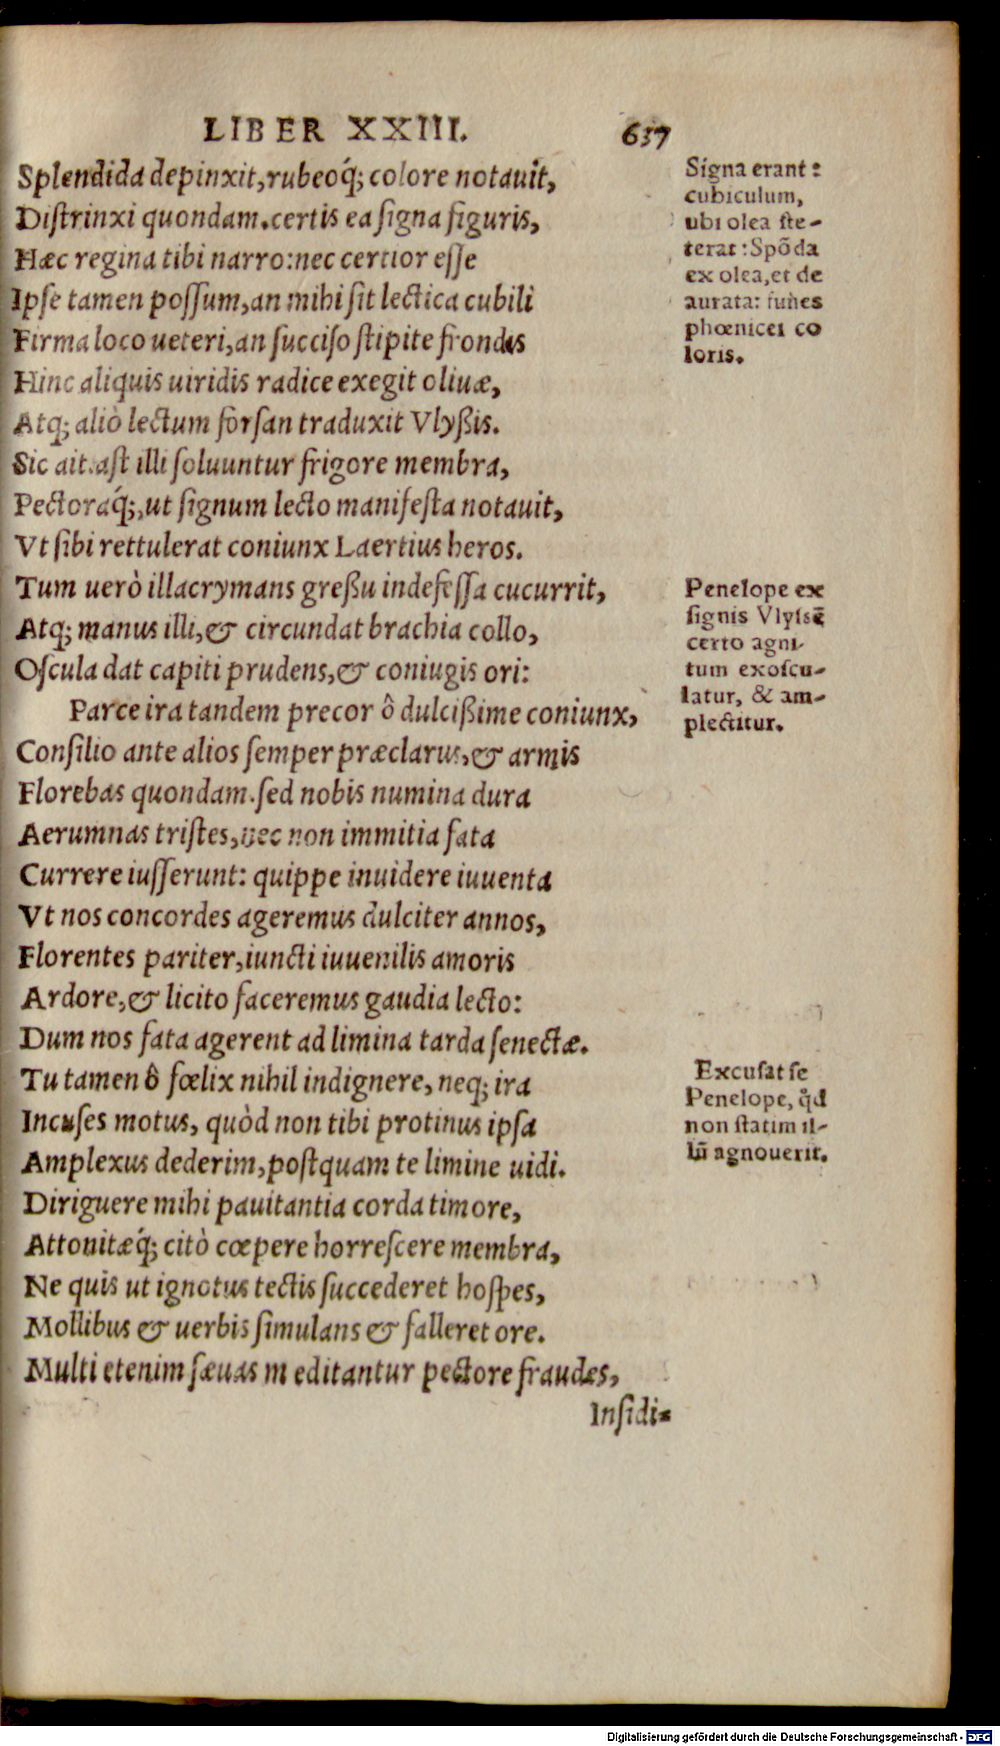 LIBER XXIII. 637
Splendida depinxit, rubeoq́; colore notauit,
Distrinxi quondam. certis ea signa figuris,
Hæc regina tibi narro: nec certior esse
Ipse tamen possum, an mihi sit lectica cubili
Firma loco ueteri, an succiso stipite frondis
Hinc aliquis uiridis radice exegit oliuæ,
Atq; aliò lectum forsan traduxit Vlyßis.
Sic ait. ast illi soluuntur frigore membra,
Pectoraq́;, ut signum lecto manifesta notauit,
Vt sibi rettulerat coniunx Laertius heros.
Tum uerò illacrymans greßu indefessa cucurrit,
Atq; manus illi, & circundat brachia collo,
Oscula dat capiti prudens, & coniugis ori:
Parce ira tandem precor ô dulcißime coniunx,
Consilio ante alios semper præclarus, & armis
Florebas quondam. sed nobis numina dura
Aerumnas tristes, nec non immitia fata
Currere iusserunt: quippe inuidere iuuenta
Vt nos concordes ageremus dulciter annos,
Florentes pariter, iuncti iuuenilis amoris
Ardore, & licito faceremus gaudia lecto:
Dum nos fata agerent ad limina tarda senectæ.
Tu tamen ô fœlix nihil indignere, neq; ira
Incuses motus, quòd non tibi protinus ipsa
Amplexus dederim, postquam te limine uidi.
Diriguere mihi pauitantia corda timore,
Attonitæq́; citò cœpere horrescere membra,
Ne quis ut ignotus tectis succederet hospes,
Mollibus & uerbis simulans & falleret ore.
Multi etenim sæuas m editantur pectore fraudes,
Insidi-
Signa erant:
cubiculum,
ubi olea ste-
terat: Spõda
ex olea, et de
aurata: funes
phœnicei co
loris.
Penelope ex
signis Vlyssẽ
certo agni-
tum exoscu-
latur, & am-
plectitur.
Excusat se
Penelope, q̊d
non statim il-
lũ agnouerit.
Digitalisierung gefördert durch die Deutsche Forschungsgemeinschaft - DFG